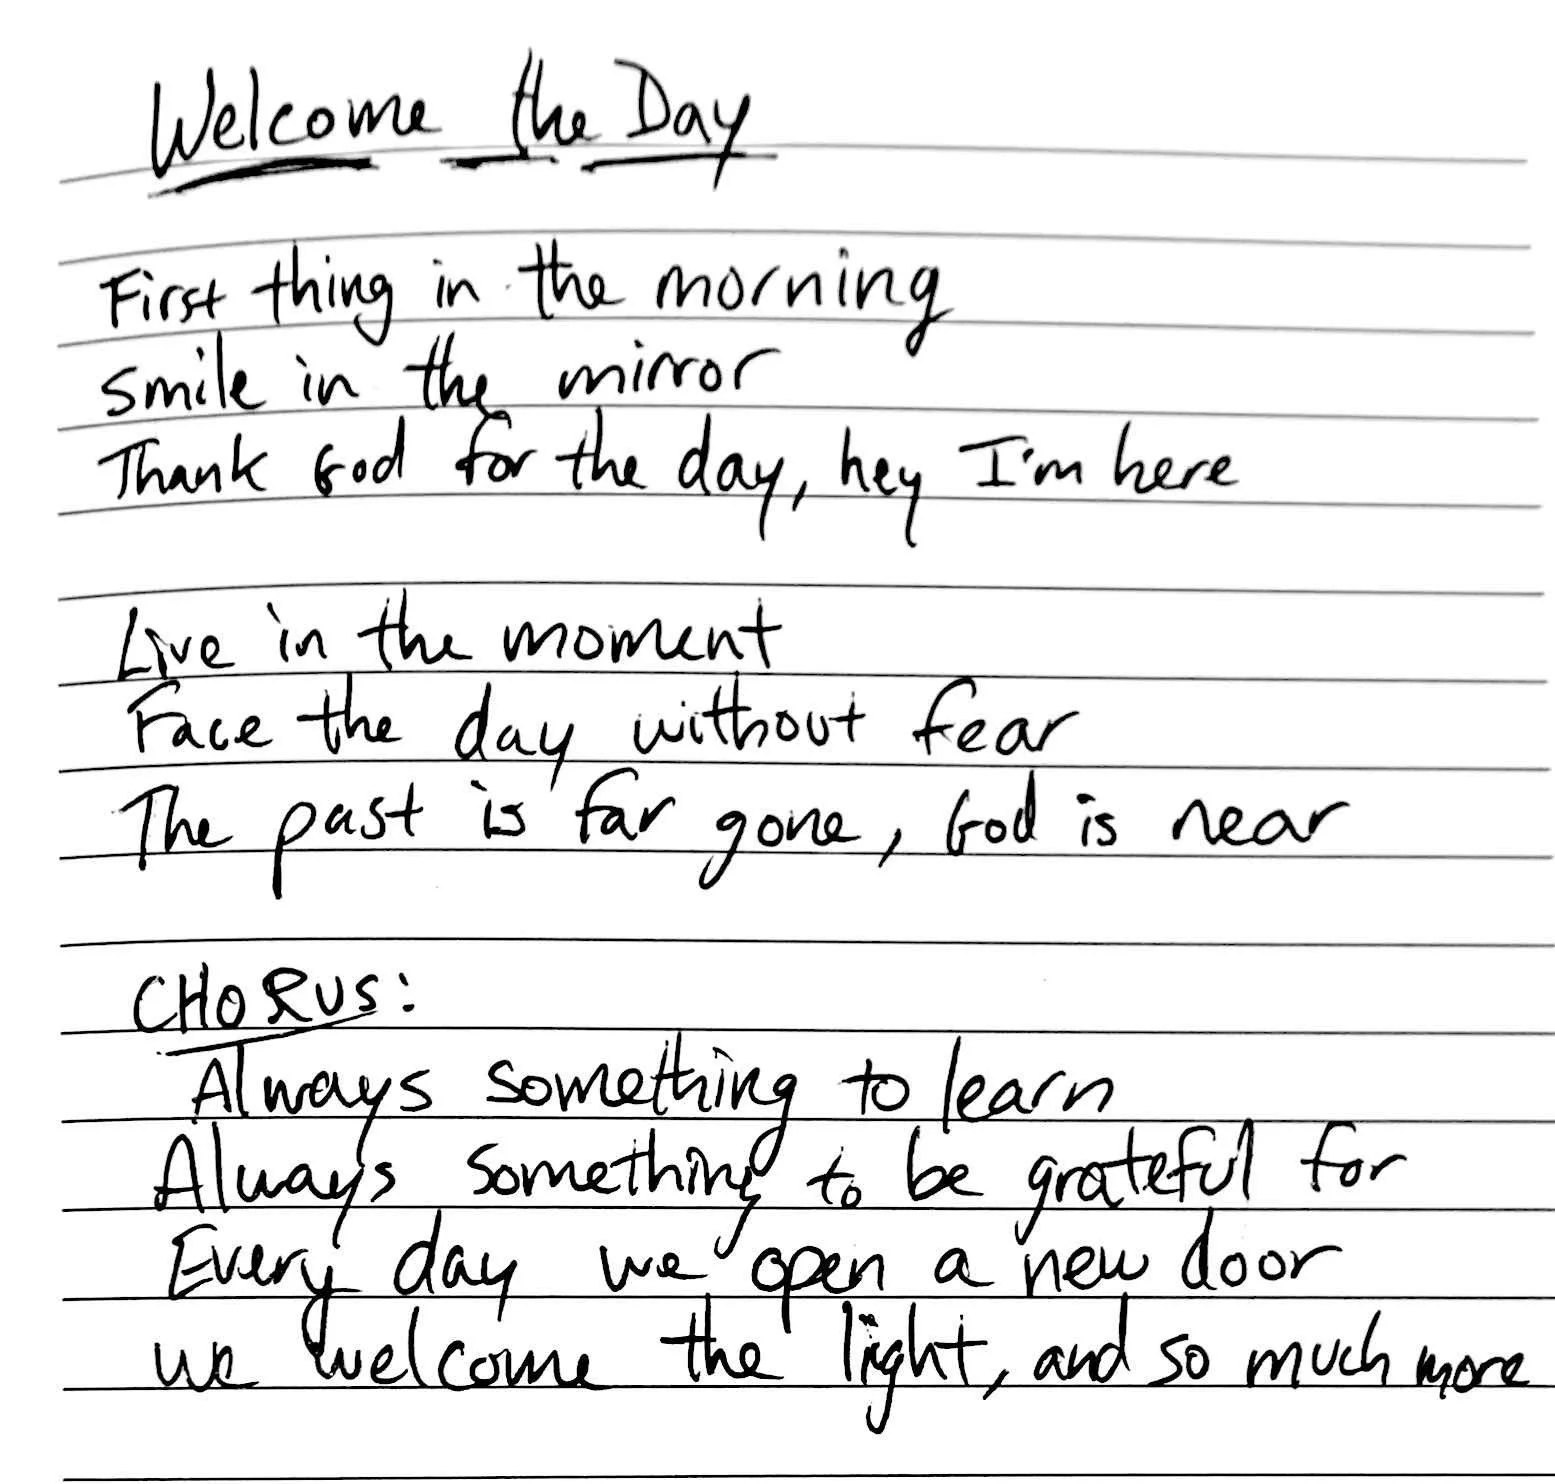 Welcome the Day
First thing in the morning
smile in the mirror
Thank God for the day, hey I'm here
Live in the moment
Face the day without fear
The past is far gone, God is near
CHORUS:
Always something to learn
Always something to be grateful for
Every day we open a new door
we welcome the light, and so much more